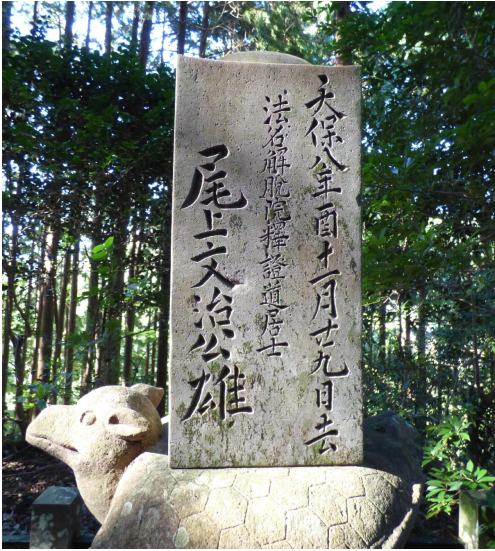 天保八年酉十一月廿九日去
法名解脱院釋證道居士
尾上文治公雄